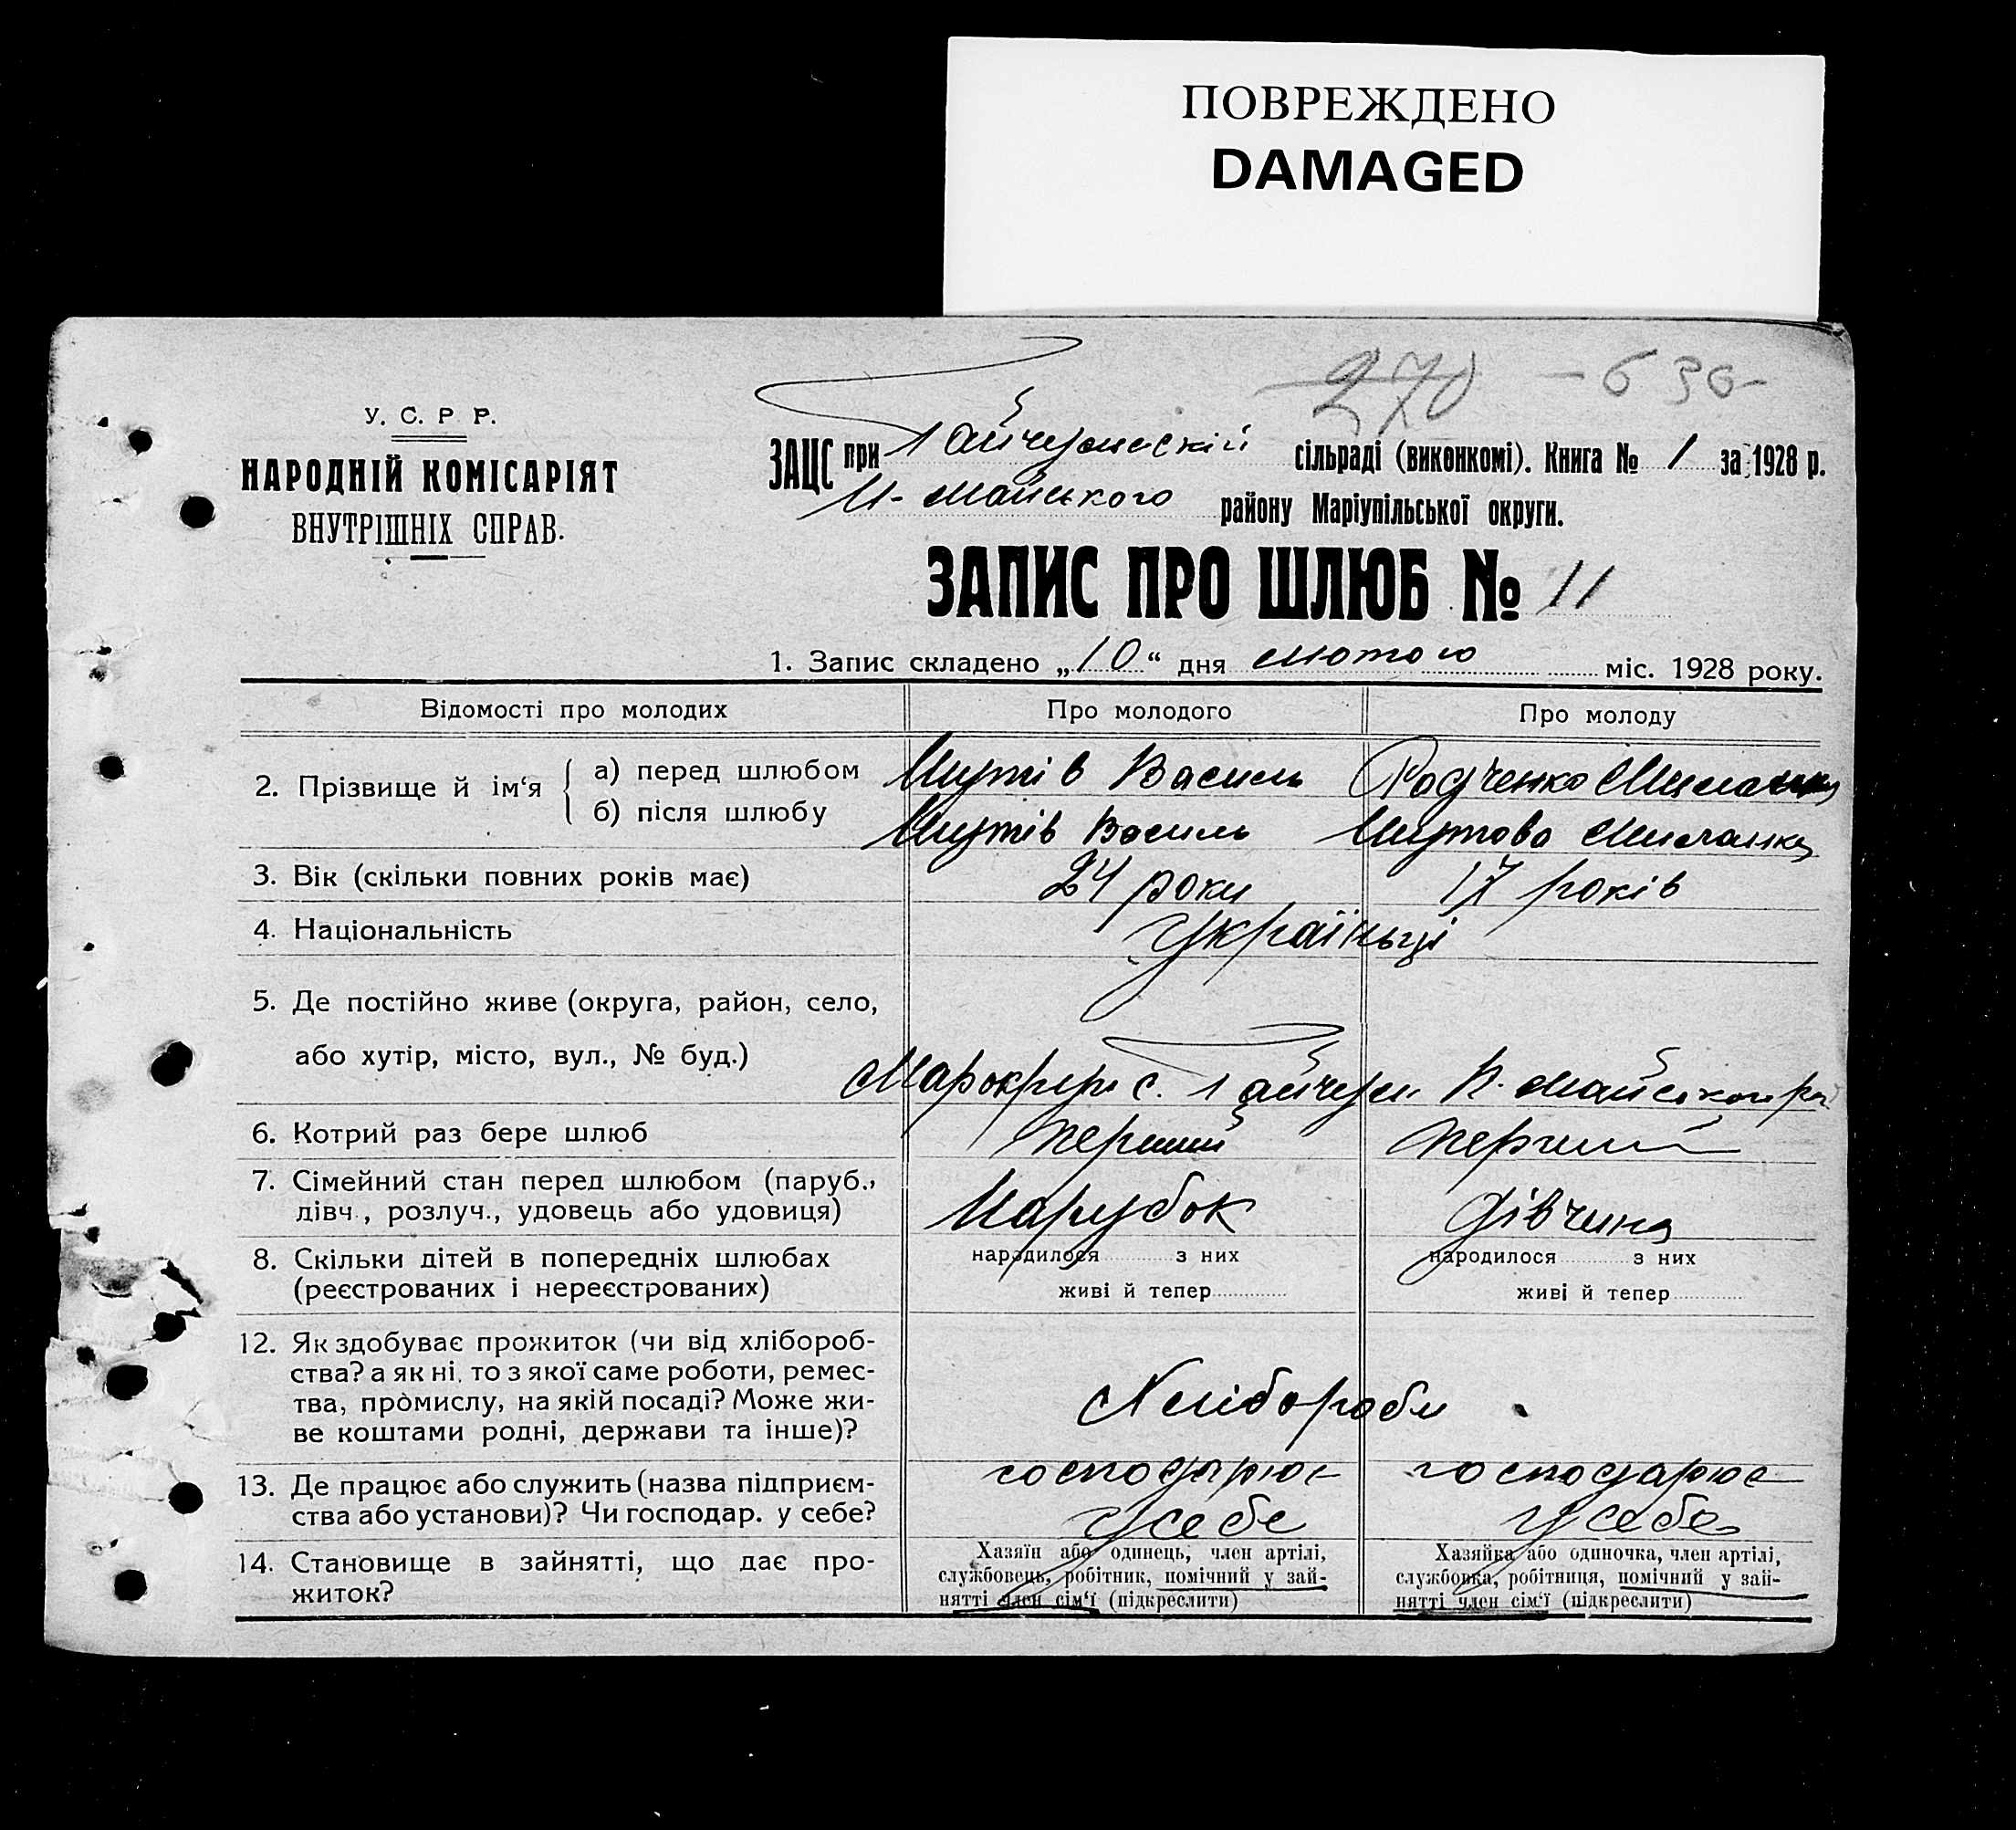 ПОВРЕЖДЕНО
DAMAGED
270 - 636
У. С. Р. Р.
НАРОДНІЙ КОМІСАРІЯТ
ВНУТРІШНІХ СПРАВ.
ЗАЦС при Гайчурській сільраді (виконкомі). Книга № 1 за 1928 р.
П-Майського району Маріупільської округи.
ЗАПИС ПРО ШЛЮБ № 11
1. Запис складено „10“ дня лютого міс. 1928 року.
Відомості про молодих Про молодого Про молоду
2. Прізвище й ім‘я { а) перед шлюбом Василь Радченко Миланка
б) після шлюбу Василь Миланка
3. Вік (скільки повних років має) 24 роки 17 років
4. Національність Українці
5. Де постійно живе (округа, район, село,
або хутір, місто, вул., № буд.) Марокруги с. Гайчур П. Майського рай
6. Котрий раз бере шлюб перший перший
7. Сімейний стан перед шлюбом (паруб.,
дівч., розлуч., удовець або удовиця) Парубок Дівчина
8. Скільки дітей в попередніх шлюбах народилося з них народилося з них
(реєстрованих і нереєстрованих) живі й тепер живі й тепер
12. Як здобуває прожиток (чи від хлібороб-
ства? а як ні, то з якої саме роботи, ремес-
тва, промислу, на якій посаді? Може жи- Хлібороби
ве коштами родні, держави та інше)?
13. Де працює або служить (назва підприєм- господарює господарює
ства або установи)? Чи господар. у себе? у себе у себе
14. Становище в зайнятті, що дає про-
житок?
Хазяїн або одинець, член артілі,
службовець, робітник, помічний у зай-
нятті член сім‘ї (підкреслити)
Хазяйка або одиночка, член артілі,
службовка, робітниця, помічний у зай-
нятті член сім‘ї (підкреслити)